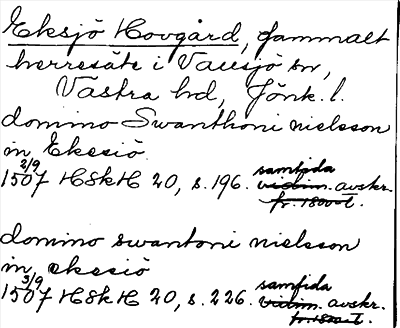 Eksjö Hovgård, gammalt
herresäte i Vallsjö sn,
Västra hd, Jönk. l.
domino Swanthoni nielsson
in Ekesiö
2/9
1507 HSkH 20, s. 196. samtida vidim. avskr.
fr. 1800-t.
domino swantoni nielsson
in ekesiö
3/9
1507 HSkH 20, s. 226. samtida vidim. avskr.
fr. 1800-t.